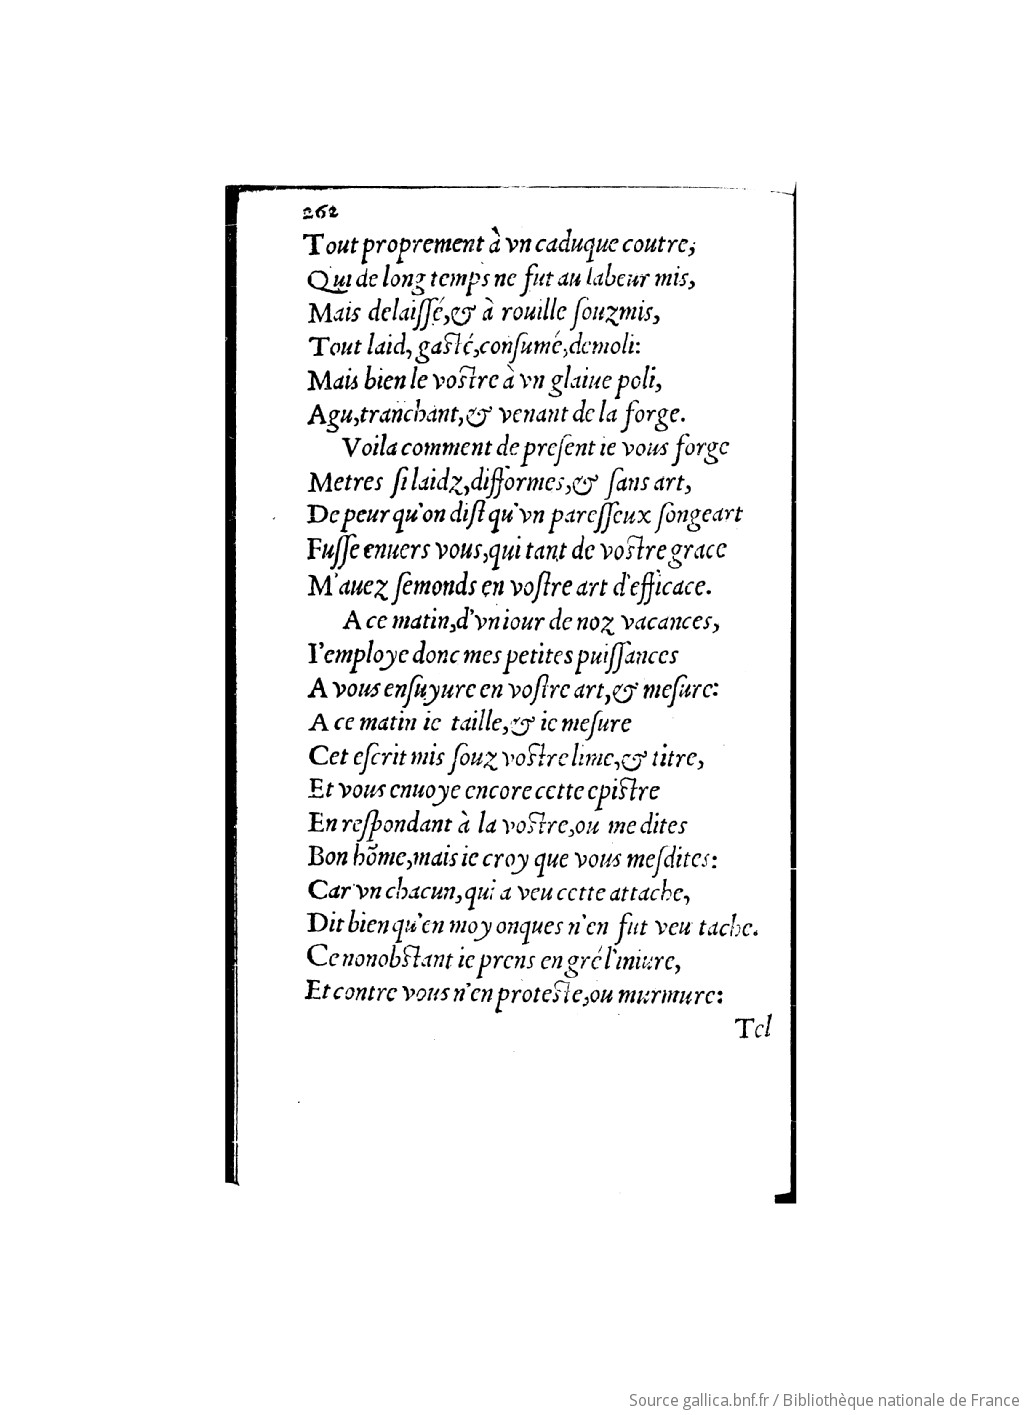 262
Tout proprement à vn caduque coutre,
Qui de long temps ne fut au labeur mis,
Mais delaiſſé,& à rouille ſouzmis,
Tout laid, gaſté,conſumé,demoli:
Mais bien le voſtre à vn glaiue poli,
Agu,tranchant,& venant de la forge.
Voila comment de preſent ie vous forge
Metres ſi laidz,difformes,& ſans art,
De peur qu'on diſt qu'vn pareſſeux ſongeart
Fuſſe enuers vous,qui tant de voſtre grace
M'auez ſemonds en voſtre art d'efficace.
A ce matin,d'vn iour de noz vacances,
I'employe donc mes petites puiſſances
A vous enſuyure en voſtre art,& meſure:
A ce matin ie taille,& ie meſure
Cet eſcrit mis ſouz voſtre lime,& titre,
Et vous enuoye encore cette epiſtre
En reſpondant à la voſtre,ou me dites
Bon hõme,mais ie croy que vous meſdites:
Car vn chacun,qui a veu cette attache,
Dit bien qu'en moy onques n'en fut veu tache.
Ce nonobſtant ie prens en gré l'iniure,
Et contre vous n'en proteſte,ou murmure:
Tel
Source gallica.bnf.fr / Bibliothèque nationale de France